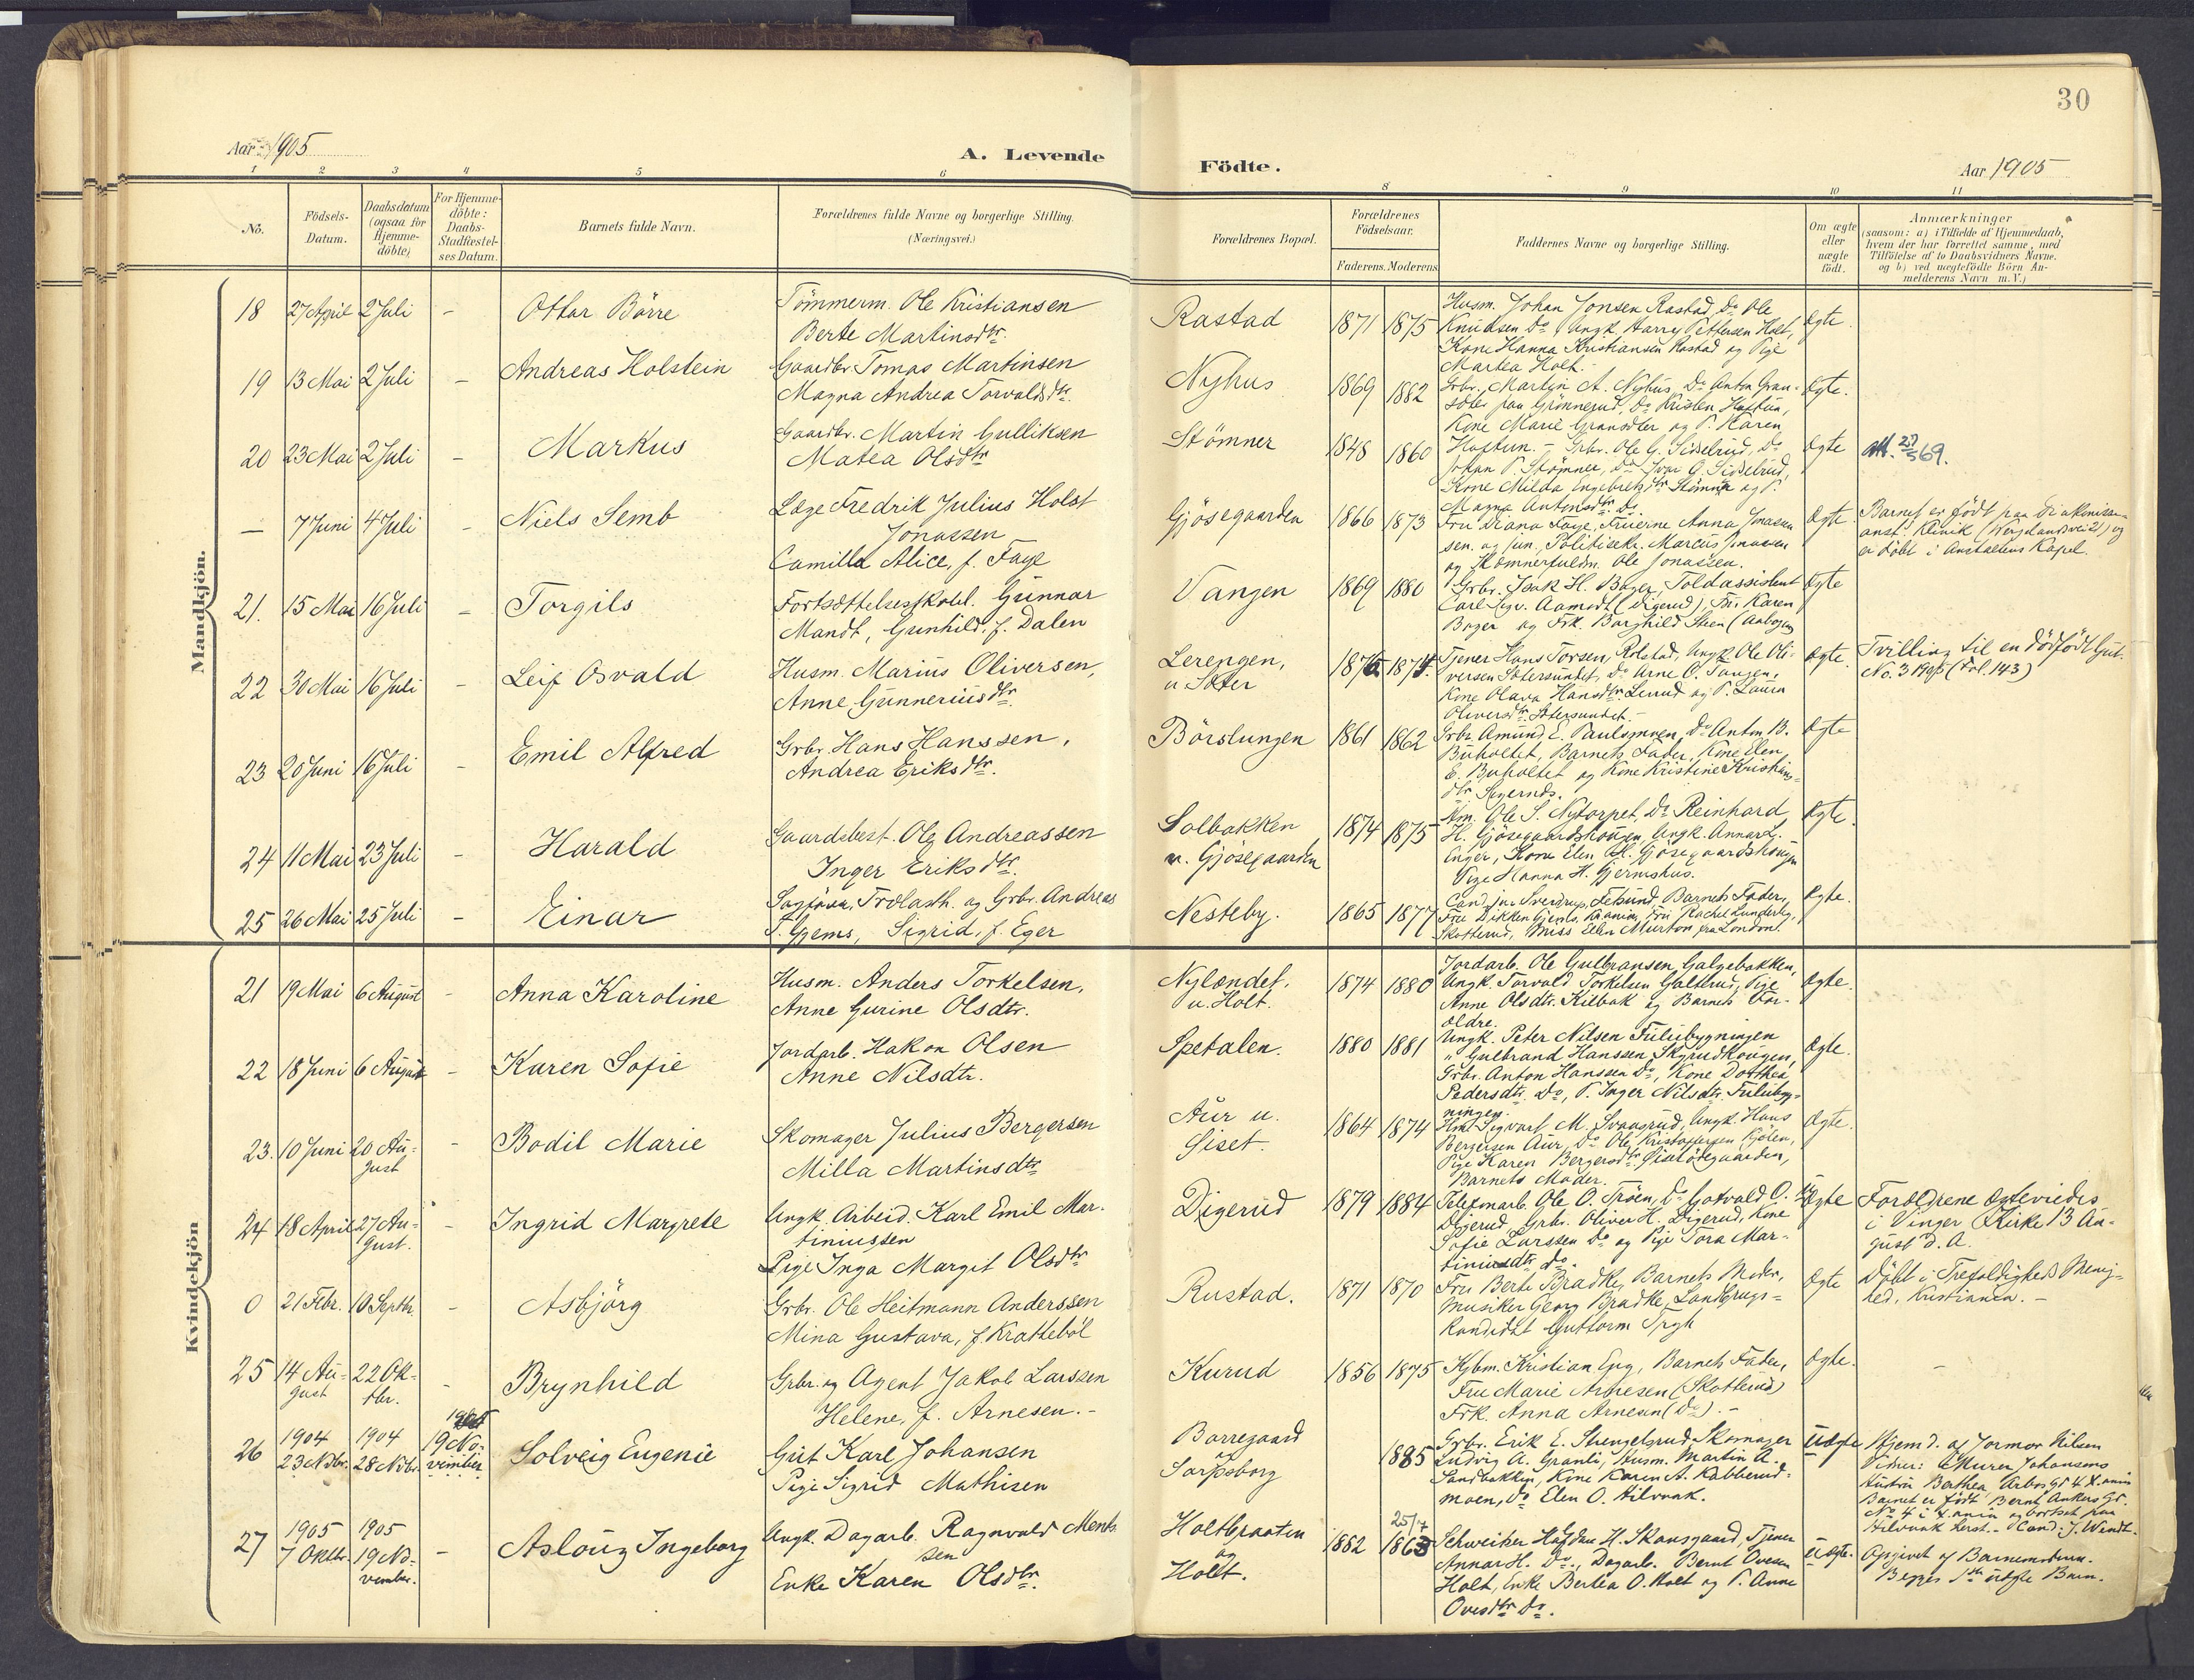 30
Aar 1905
A. Levende Födte.
Aar 1905
1 2 3 4 5 6 8 9 10 11
No.
Födsels-Datum.
Daabsdatum (ogsaa for Hjemme-döbte)
For Hjemme-döbte: Daabs-Stadfæstel-ses Datum.
Barnets fulde Navn.
Forældrenes fulde Navne og borgerlige Stilling.
(Næringsvei.)
Forældrenes Bopæl.
Forældrenes Födselsaar.
Faderens. Moderens
Faddernes Navne og borgerlige Stilling.
Om ægte eller uægte födt.
Anmærkninger
(saasom: a) i Tilfælde af Hjemmedaab,
hvem der har forrettet samme, med
Tilföielse af to Daabsvidners Navne.
og b) ved uægtefödte Börn An-
melderens Navn m.V.)
Mandkjön.
18 27 April 2 Juli - Ottar Börre
Tömmerm. Ole Kristiansen
Berte Martinsdtr.
Rastad 1871 1875
Husm. Johan Jonsen Rastad, Do Ole
Knudsen Do, Ungk. Harry Pettersen Holt,
Kone Hanna Kristiansen Rastad og Pige
Martea Holt.-
Ægte.
19 13 Mai 2 Juli - Andreas Holstein
Gaardbr. Tomas Martinsen
Magna Andrea Torvaldsdtr.
Nyhus 1869 1882
Grbr. Martin A. Nyhus, Do Anton Gran-
sæter paa Grönnerud, Do Kristen Haftun,
Kone Marie Gransæter og P. Karen
Haftun.-
Ægte.
20 23 Mai 2 Juli - Markus
Gaardbr. Martin Gulliksen
Matea Olsdtr
Stömner 1848 1860
Grbr. Ole G. Sidselrud, Do
Johan P. Stömner, Do Ivar G. Sidselrud,
Kone Milda Engebretsdtr Stömner og P.
Magna Antonsdtr Do.
Ægte
Att. 27/5 69.
— 7 Juni 4 Juli - Niels Semb
Læge Fredrik Julius Holst
Jonassen
Camilla Alice, f. Faye
Gjösegaarden 1866 1873
Fru Diana Faye, Fruerne Anna Jonassen
sen. og jun., Politisekr. Marcus Jonassen
og Ole Jonassen.
Ægte.
Barnet er födt paa Diakonisse-
anst. Klinik (Wergelandsvei 21) og
er döbt i Anstaltens Kapel.
21. 15 Mai 16 Juli - Torgils
Fortsættelsesskolel. Gunnar
Mandt, Gunhild, f. Dalen
Vangen 1869 1880
Grbr. Isak H. Bager, Toldassistent
Carl Sigv. Aamodt (Digerud), Fru Karen
Bager og Frk. Borghild Steen (Aabogen)
Ægte
22 30 Mai 16 Juli - Leif Osvald
Husm. Marius Oliversen,
Anne Gunneriusdtr.
Lerengen,
u. Sæter 1876 1874.
Tjener Hans Torsen, Rolstad, Ungk. Ole Oli-
versen Sætersundet, Do Arne O. Tangen,
Kone Olava Hansdtr. Lerud og P. Laura
Oliversdtr Sætersundet.-
Ægte.
Tvilling til en dödfödt Gut.
No. 3 1905 (Fol. 143)
23 20 Juni 16 Juli - Emil Alfred
Grbr. Hans Hanssen,
Andrea Eriksdtr.
Börslungen 1861 1862
Grbr. Amund E. Paulsmoen, Do Anton B.
Buholtet, Barnets Fader, Kone Elen
E. Buholtet og Kone Kristine Kristians-
dtr Sagernds.
Ægte
24 11 Mai 23 Juli - Harald
Gaardsbest. Ole Andreassen
Inger Eriksdtr.
Solbakken
u. Gjösegaarden 1874 1875
Hm. Ole S. Nytorpet, Do Reinhard
H. Gjösegaardskougen, Ungk. Annar L.
Enger, Kone Elen H. Gjösegaardskougen
Pige Hanna H. Gjermshus.
Ægte.
25 26 Mai 25 Juli - Einar
Sagförer, Trælasth. og Grbr. Andreas
T. Gjems, Sigrid, f. Eger
Nesteby. 1865 1877
Cand. jur. Sverdrup, Fetsund, Barnets Fader,
Fru Dikken Gjems, Kr.ania, Fru Rachel Lunderby,
Skotterud, Miss Ellen Murton fra London.
Ægte.
Kvindekjön
21 19 Mai 6 August - Anna Karoline
Husm. Anders Torkelsen,
Anne Gurine Olsdtr.
Nylændet,
u. Holt. 1874 1880
Jordarb. Ole Gulbransen Galgebakken,
Ungk. Torvald Torkelsen Galterud, Pige
Anne Olsdtr. Kilbak og Barnets For-
ældre.
Ægte.
22 18 Juni 6 August - Karen Sofie
Jordarb. Hakon Olsen
Anne Nilsdtr.
Spetalen. 1880 1881
Ungk. Peter Nilsen Fulubygningen
" Gulbrand Hanssen Skjrudkougen,
Grbr. Anton Hanssen Do, Kone Dorthea
Pedersdtr. Do, P. Inger Nilsdtr. Fulubyg-
ningen.
Ægte.
23. 10 Juni 20 Au-
gust - Bodil Marie
Skomager Julius Bergersen
Milla Martinsdtr
Aur u.
Siset. 1864 1874
Hm. Sigvart M. Svansrud, Ungk. Hans
Bergersen Aur, Do Ole Kristoffersen Kjölen,
Pige Karen Bergersdtr. Sisetödegaarden,
Barnets Moder.
Ægte.
24 18 April 27 Au-
gust. - Ingrid Margrete
Ungk. Arbeid. Karl Emil Mar-
tiniussen
Pige Inga Margit Olsdtr
Digerud 1879 1884
Telefonarb. Ole O. Tröen, Do Gotvald O.
Digerud, Grbr. Oliver H. Digerud, Kone
Sofie Larssen Do og Pige Tora Mar-
tiniusdtr Do.
Uægte
Forældrene ægteviedes
i Vinger Kirke 13 Au-
gust d. A.
0 21 Febr. 10 Septbr. - Asbjörg
Grbr. Ole Heitmann Anderssen
Mina Gustava, f. Krattebøl
Rustad. 1871 1870
Fru Berte Bradke, Barnets Moder,
Musiker Georg Bradke, Landbrugs-
kandidat Guttorm
Ægte
Döbt i Trefoldigheds Menig-
hed, Kristiania.-
25 14 Au-
gust 22 Ok-
tbr. - Brynhild
Grbr. og Agent Jakob Larssen
Helene, f. Arnesen.-
Kurud 1856 1875
Kjbm. Kristian Eng, Barnets Fader,
Fru Marie Arnesen (Skotterud)
Frk. Anna Arnesen (Do).-
Ægte.
-
26 1904
23 Nvbr. 1904
28 Nvbr. 19 No-
vember Solveig Eugenie
Gut Karl Johansen
Pige Sigrid Mathisen
Borregaard
Sarpsborg 1885
Grbr. Erik E. Strengelsrud, Skomager
Ludvig A. Granli, Husm. Martin A.
Sandbakken, Kone Karen A. Kabberud-
moen, Do Elen O. Hilvank.
Uægte
Hjemd. af Jormor Nilsen
Vidner: Murer Johansens
Hustru Barthea
Barnet er födt Bernt Ankers Gt.
No 4 i X.ania og bortsat paa
Cand. J. Wendt.
27 1905
7 Oktbr. 1905
19 No-
vember. - Aslaug Ingeborg
Ungk. Dagarb. Ragnvald Ments
sen
Enke Karen Olsdtr.
Holtbraaten
og
Holt. 1882 25/7 1863
Schweitzer Halfdan H. Skansgaard, Tjener
Annar H. Do., Dagarb. Bernt Ovesen
Holt, Enke Bertea O. Holt og P. Anne
Ovesdtr Do.
Uægte.
Opgivet af Barnemoderen.
Begges 1ste uægte Barn.